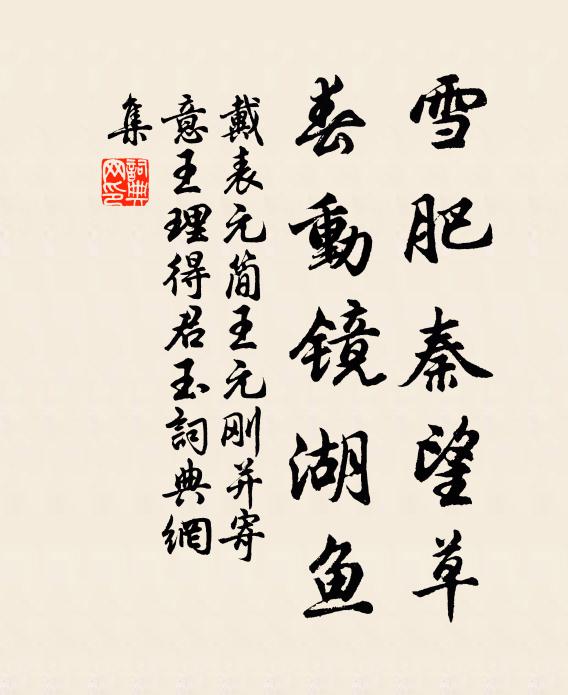 雪肥秦望草
春動镜湖鱼
戴表元简王元刚并寄
意王理得君玉詞典網
集
詞典网印